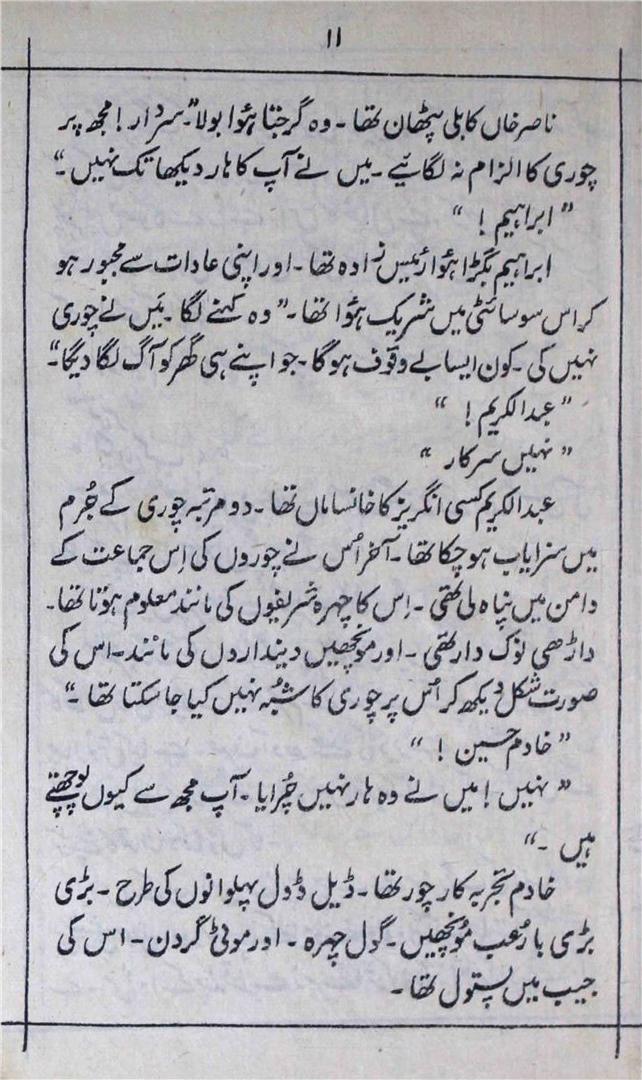 ۱۱
ناصر خاں کابلی پٹھان تھا ۔ وہ گرجتا ہؤا بولا"۔ سردار! مجھ پر
چوری کا الزام نہ لگائیے ۔ میں نے آپ کا ہار دیکھا تک نہیں ۔"
" ابراہیم ! "
ابراہیم بگڑا ہؤا رئیس زادہ تھا ۔ اور اپنی عادات سے مجبور ہو
کر اس سوسائٹی میں شریک ہؤا تھا ۔" وہ کہنے لگا ۔ میَں نے چوری
نہیں کی ۔ کون ایسا بے وقوف ہو گا ۔ جو اپنے ہی گھر کو آگ لگا دیگا ۔"
" عبدالکریم ! "
" نہیں سرکار "
عبدالکریم کسی انگریز کا خانساماں تھا ۔ دو مرتبہ چوری کے جُرم
میں سزایاب ہو چکا تھا ۔ آخر اُس نے چوروں کی اِس جماعت کے
دامن میں پناہ لی تھی ۔ اِس کا چہرہ شریفوں کی مانند معلوم ہوتا تھا ۔
داڑھی نوک دار تھی ۔ اور مونچھیں دینداردں کی مانند ۔ اس کی
صورت شکل دیکھ کر اُس پر چوری کا شُبہ نہیں کیا جا سکتا تھا ۔"
" خادم حسین ! "
" نہیں ! میں نے وہ ہار نہیں چُرایا ۔ آپ مجھ سے کیوں پوچھتے
ہیں ۔"
خادم تجربہ کار چور تھا ۔ ڈیل ڈول پہلوانوں کی طرح ۔ بڑی
بڑی بارُعب مونچھیں ۔ گول چہرہ ۔ اور موٹی گردن ۔ اس کی
جیب میں پستول تھا ۔